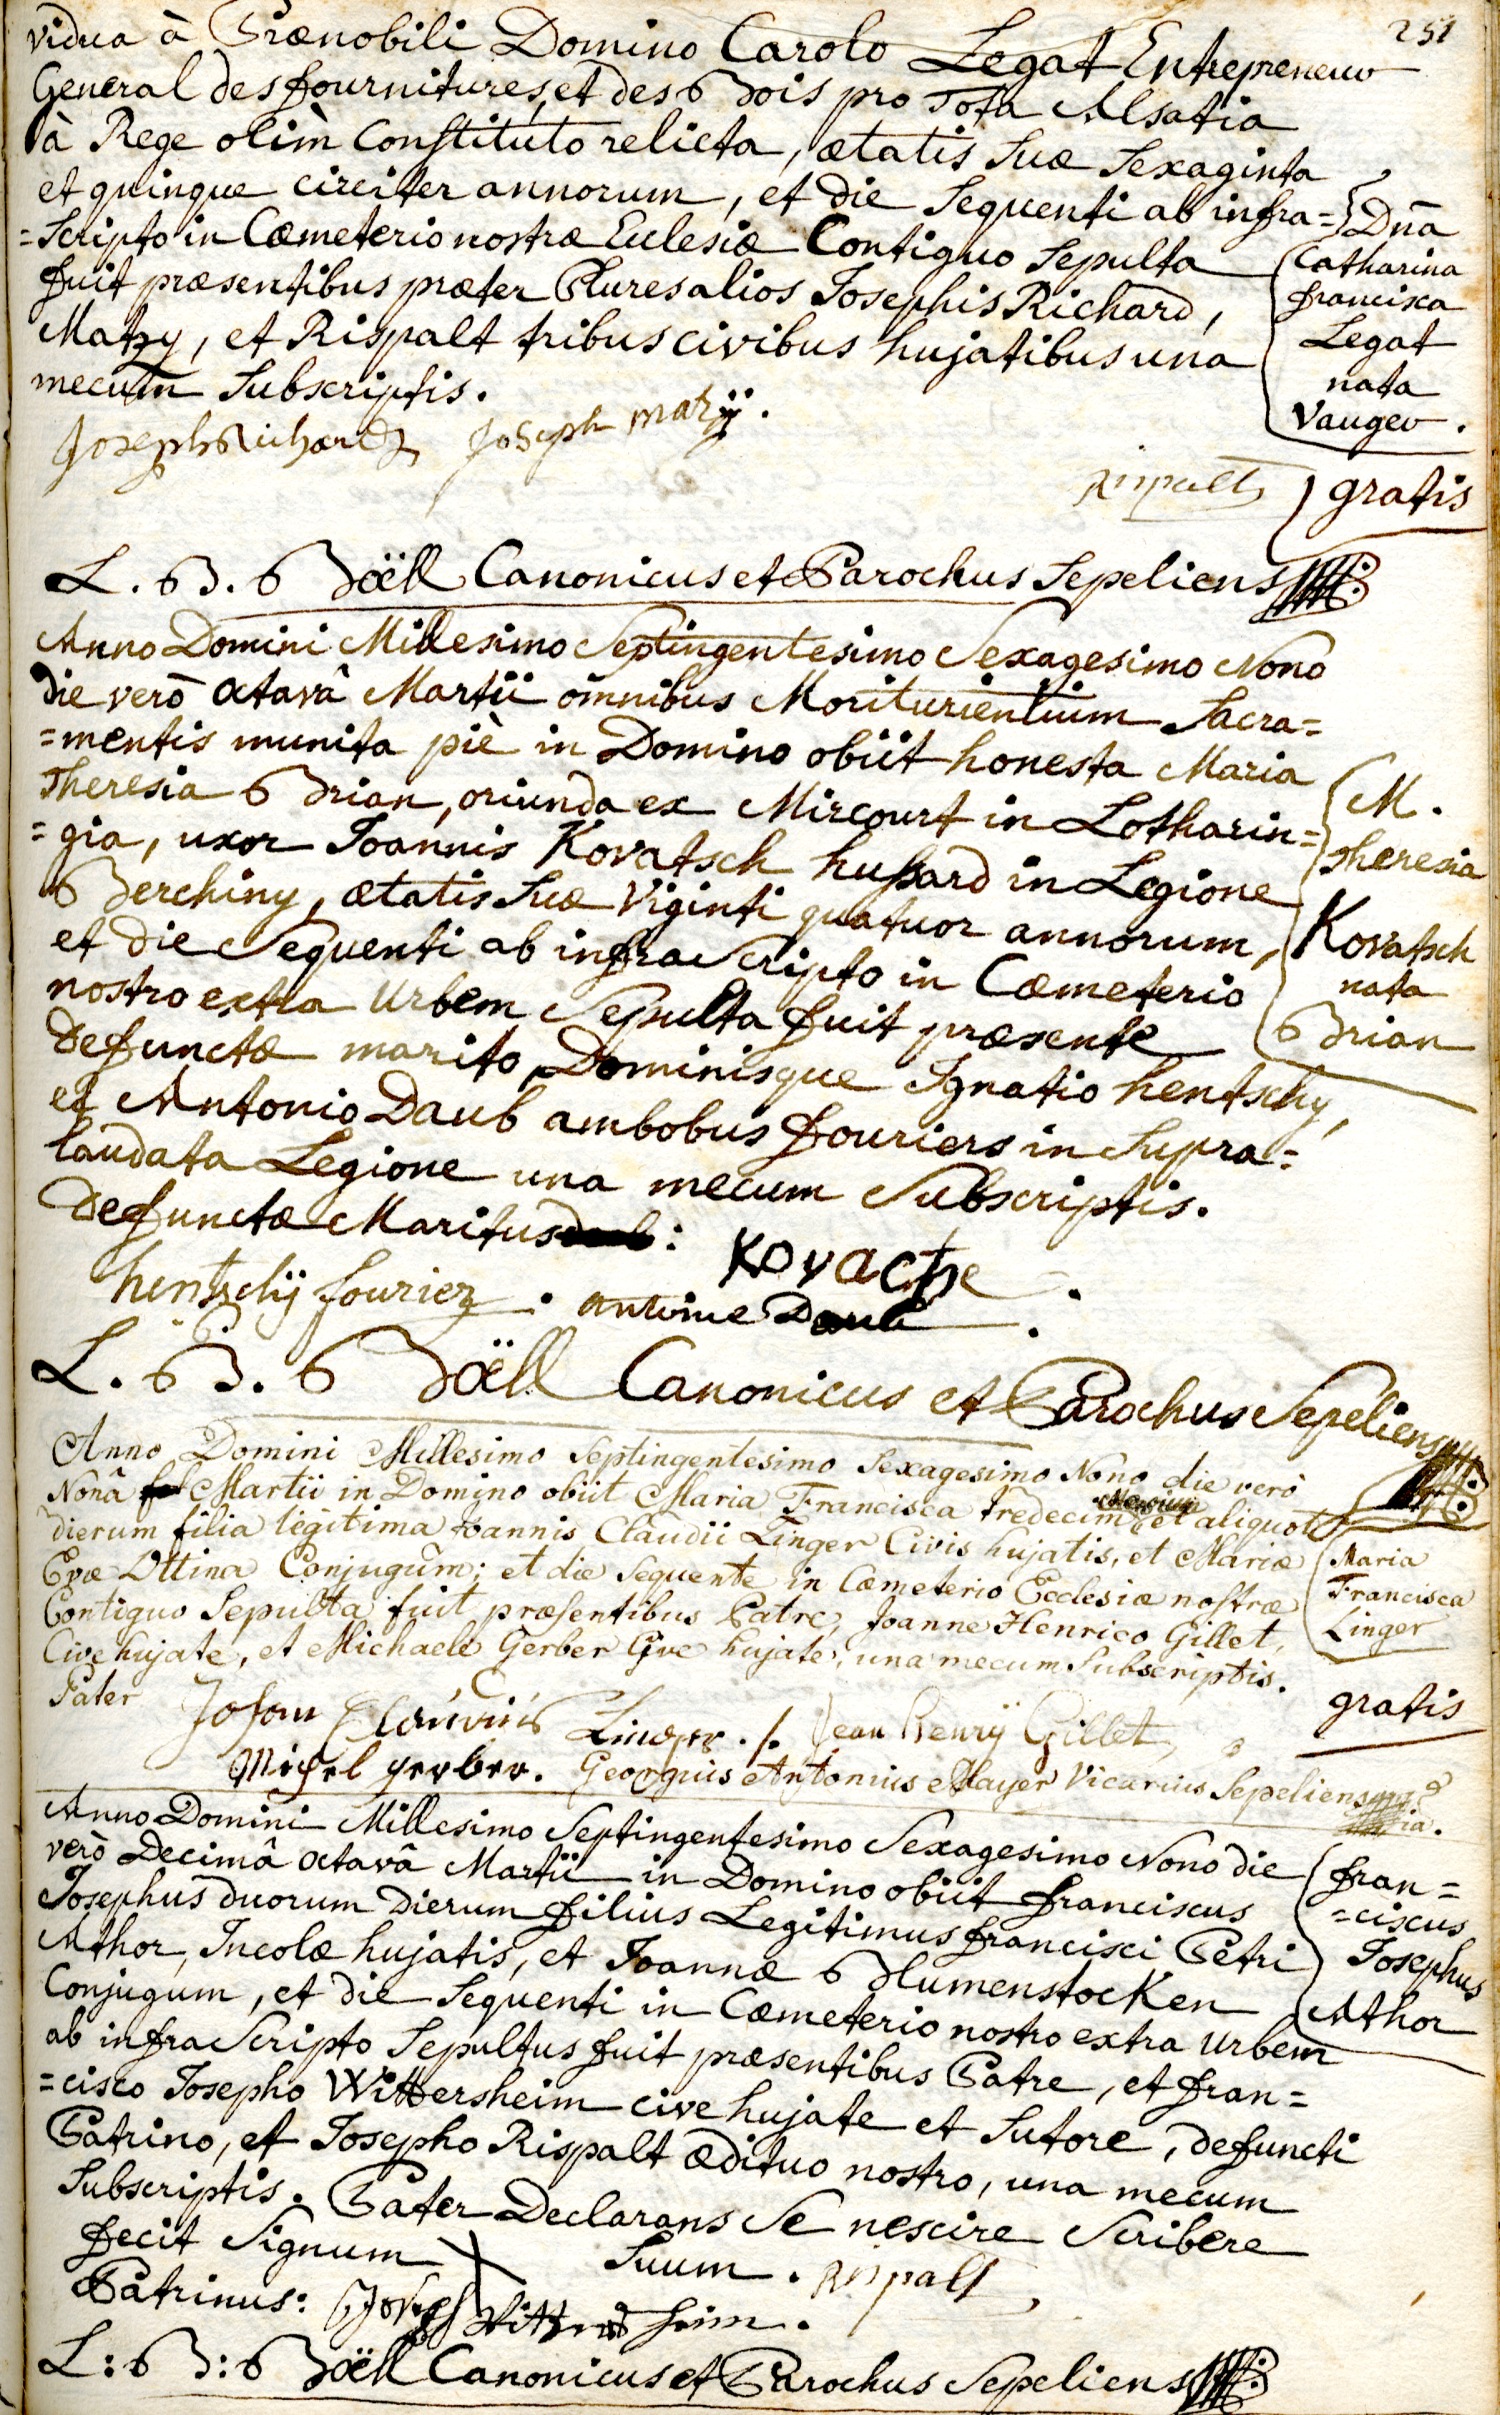 251
vidua à Prænobili Domino Carolo Legat Entrepreneur
General des fournitures, et des Bois pro Tota Alsatia
à Rege olim Constituto relicta, ætatis suæ Sexaginta
et quinque circiter annorum, et die Sequenti ab infra=
=Scripto in Cæmeterio nostræ Eclesiæ Contiguo Sepulta
fuit præsentibus præter Plures alios Josephis Richard,
Matzy, et Rispalt tribus civibus hujatibus una
mecum Subscriptis.
Dña
Catharina
francisca
Legat
nata
Vaugeo.
Joseph Richard Joseph matzÿ.
Rispalt
gratis
L. B. Boëll Canonicus et Parochus Sepeliens
Anno Domini Millesimo Septingentesimo Sexagesimo Nono
die verò octavâ Martii omnibus Moriturientium Sacra=
=mentis munita piè in Domino obiit honesta Maria
Theresia Brian, oriunda ex Mircourt in Lotharin=
=gia, uxor Joannis Kovatsch hussard in Legione
Berchiny, ætatis Suæ Viginti quatuor annorum,
et die Sequenti ab infra Scripto in Cæmeterio
nostro extra Urbem Sepulta fuit præsente
defunctæ marito, Dominisque Ignatio hentschy,
et Antonio Daub ambobus fouriers in Supra=
laudata Legione una mecum Subscriptis.
M.
Theresia
Kovatsch
nata
Brian
Defunctæ Maritus : Kovactse.
hentzchÿ fourier. antoine Daub.
L. B. Boëll Canonicus et Parochus Sepeliens
Anno Domini Millesimo Septingentesimo Sexagesimo Nono die verò
Nonâ Martii in Domino obiit Maria Francisca tredecim Mensium et aliquot
dierum filia legitima Joannis Claudii Linger Civis hujatis, et Mariæ
Evæ Ottina Conjugum; et die Sequente in Cæmeterio Ecclesiæ nostræ
Contiguo Sepulta fuit præsentibus Patre, Joanne Henrico Gillet,
Cive hujate, et Michaele Gerber Cive hujate, una mecum Subscriptis.
Maria
Francisca
Linger
gratis
Pater Johan Clauvius Linger ./. Jean Henrÿ Gillet,
Michel gerber. Georgius Antonius Mayer Vicarius Sepeliens
Anno Domini Millesimo Septingentesimo Sexagesimo Nono die
verò Decimâ octavâ Martii in Domino obiit franciscus
Josephus duorum Dierum filius Legitimus francisci Petri
Athor, Incolæ hujatis, et Joannæ Blumenstocken
Conjugum, et die Sequenti in Cæmeterio nostro extra Urbem
ab infra Scripto Sepultus fuit præsentibus Patre, et fran=
=cisco Josepho Wittersheim cive hujate et Sutore, defuncti
Patrino, et Josepho Rispalt ædituo nostro, una mecum
Subscriptis. Pater Declarans Se nescire Scribere
fecit Signum X Suum. Rispalt
fran=
=ciscus
Josephus
Athor
Patrinus: Joseph Wittersheim.
L: B: Boëll Canonicus et Parochus Sepeliens